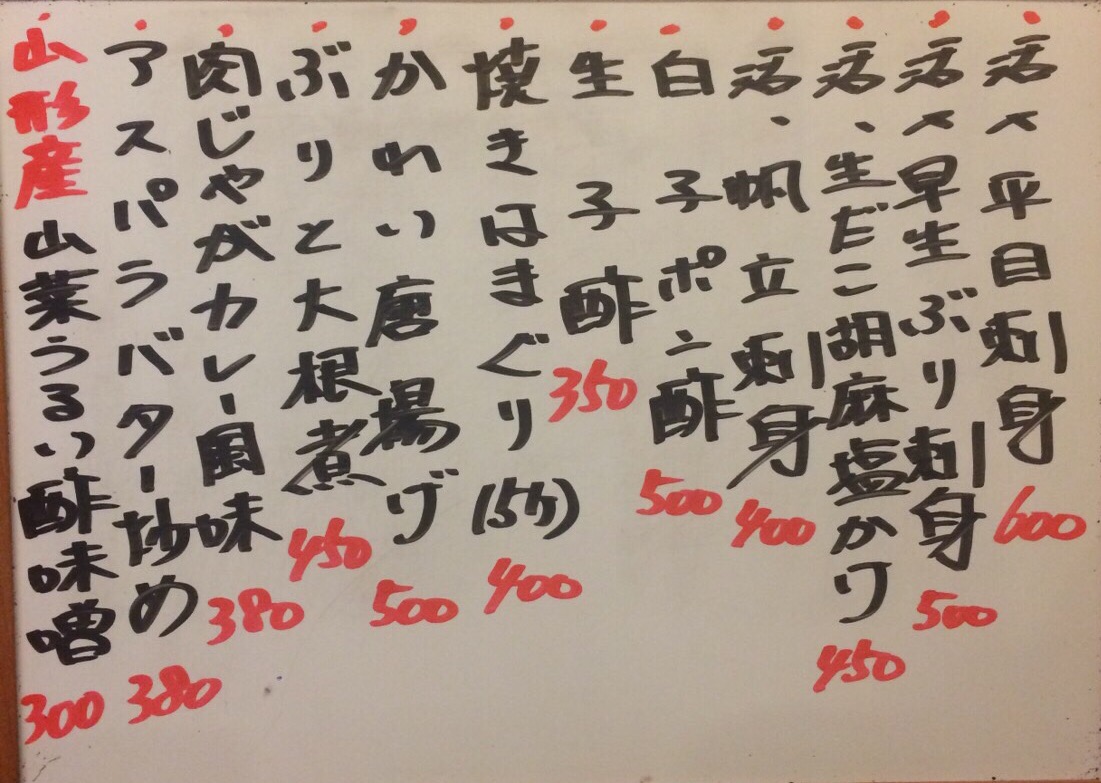 ・活〆平目刺身 600
・活〆早生ぶり刺身 500
・活、生だこ胡麻塩かけ 450
・活、帆立刺身 400
・白子ポン酢 500
・生子酢 350
・焼きはまぐり(5ケ) 400
・かれい唐揚げ 500
・ぶりと大根煮 450
・肉じゃがカレー風味 380
・アスパラバター炒め 380
・山形産山菜うるい酢味噌 300